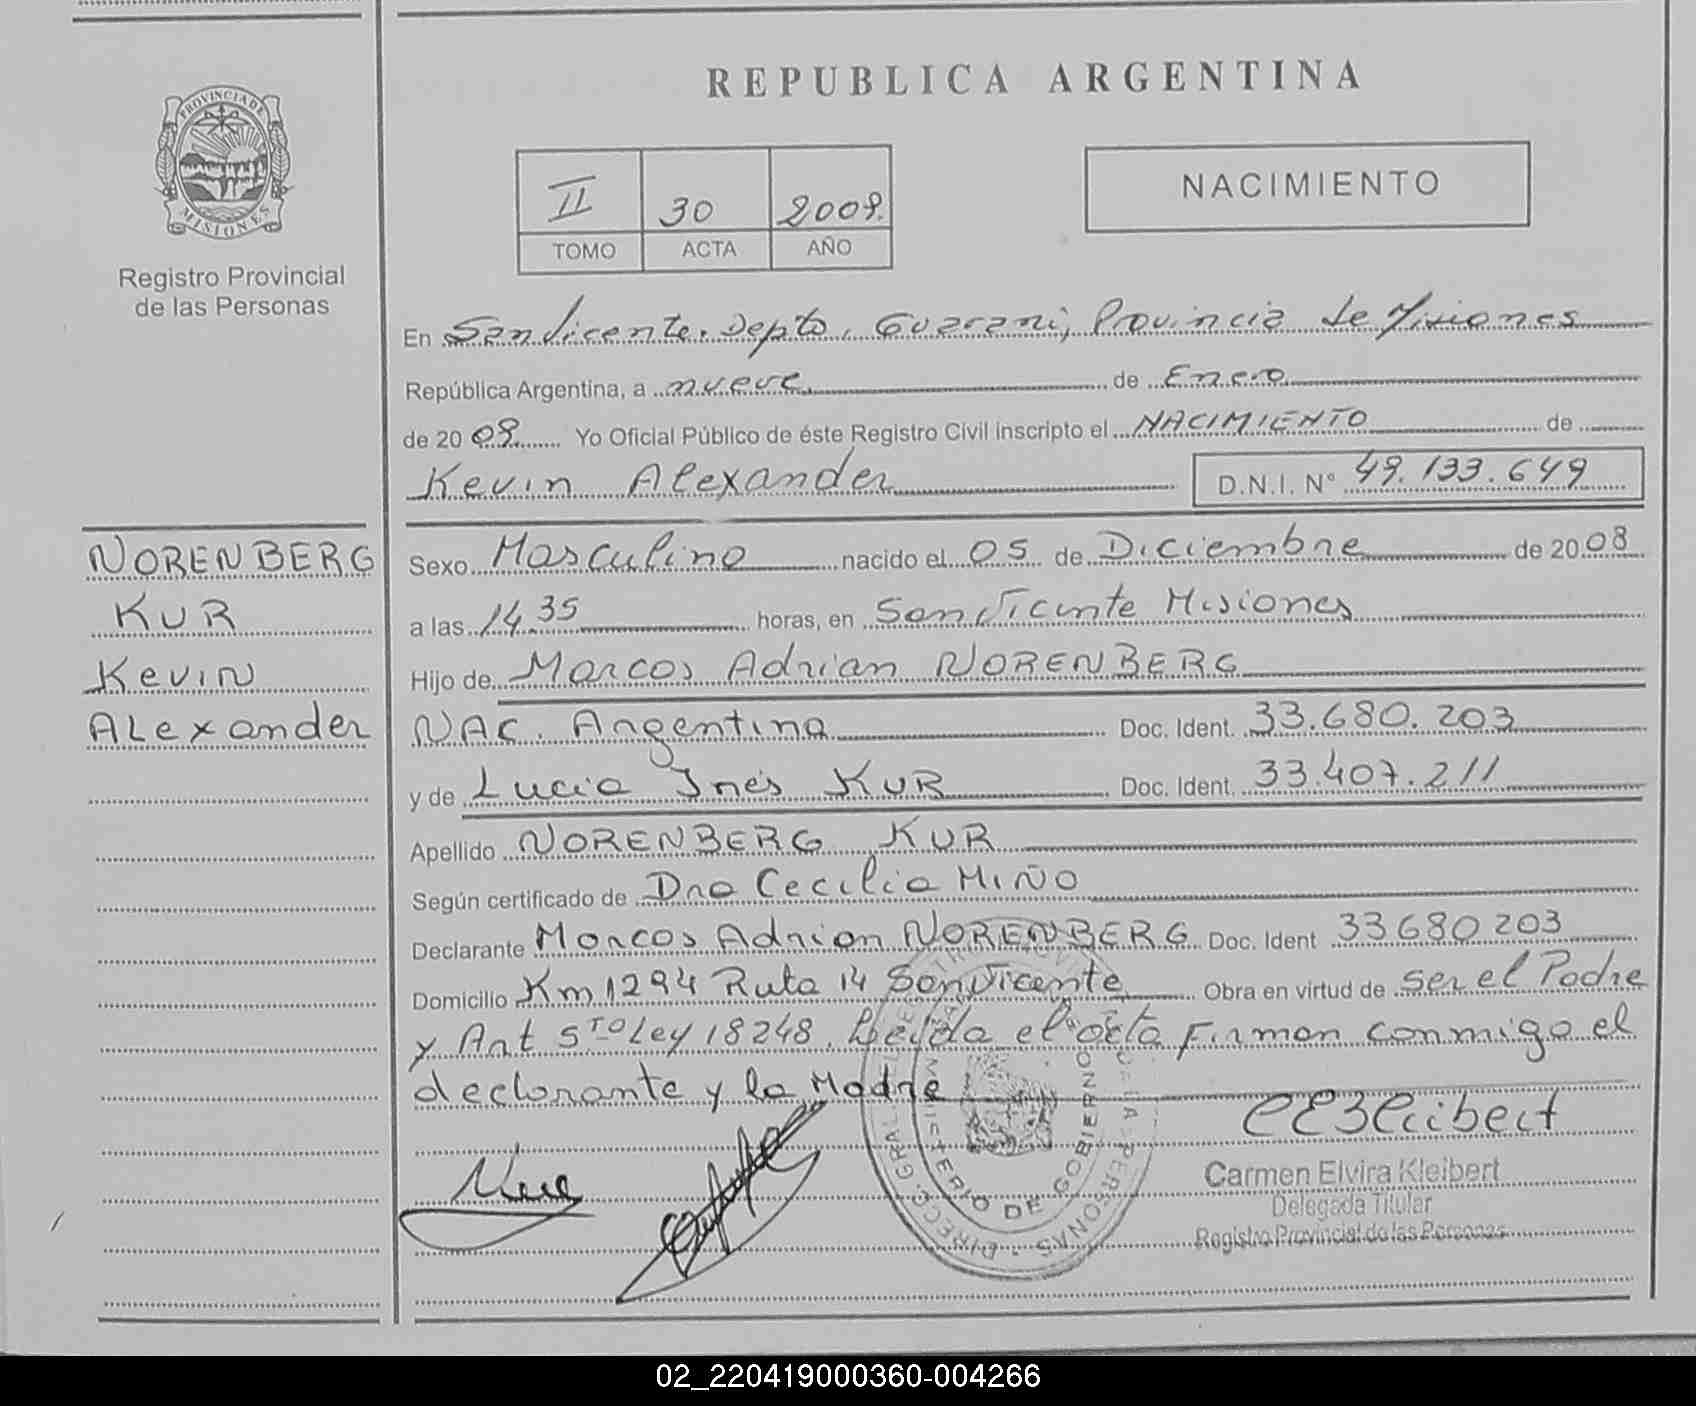 REPUBLICA ARGENTINA
PROVINCIA DE
MISIONES
Registro Provincial
de las Personas
II 30 2009.
TOMO ACTA AÑO
NACIMIENTO
En San Vicente. Depto. Guarani, Provincia de Misiones
República Argentina, a nueve de Enero
de 20 09 Yo Oficial Público de éste Registro Civil inscripto el NACIMIENTO de
Kevin Alexander D.N.I. N° 49.133.649
NORENBERG
KUR
Kevin
ALexander
Sexo Masculino nacido el 05 de Diciembre de 20 08
a las 14.35 horas, en San Vicente Misiones
Hijo de Marcos Adrian NORENBERG
NAC. Argentina Doc. Ident. 33.680.203
y de Lucia Inés KUR Doc. Ident. 33.407.211
Apellido NORENBERG KUR
Según certificado de Dra Cecilia MIÑO
Declarante Marcos Adrian NORENBERG Doc. Ident 33680203
Domicilio Km 1294 Ruta 14 San Vicente Obra en virtud de ser el Padre
y Art 5to Ley 18248. Leida el acta Firman conmigo el
declarante y la Madre
MINISTERIO DE GOBIERNO
DIRECC. GRAL. PERSONAS
Carmen Elvira Kleibert
Delegada Titular
Registro Provincial de las Personas
02_220419000360-004266